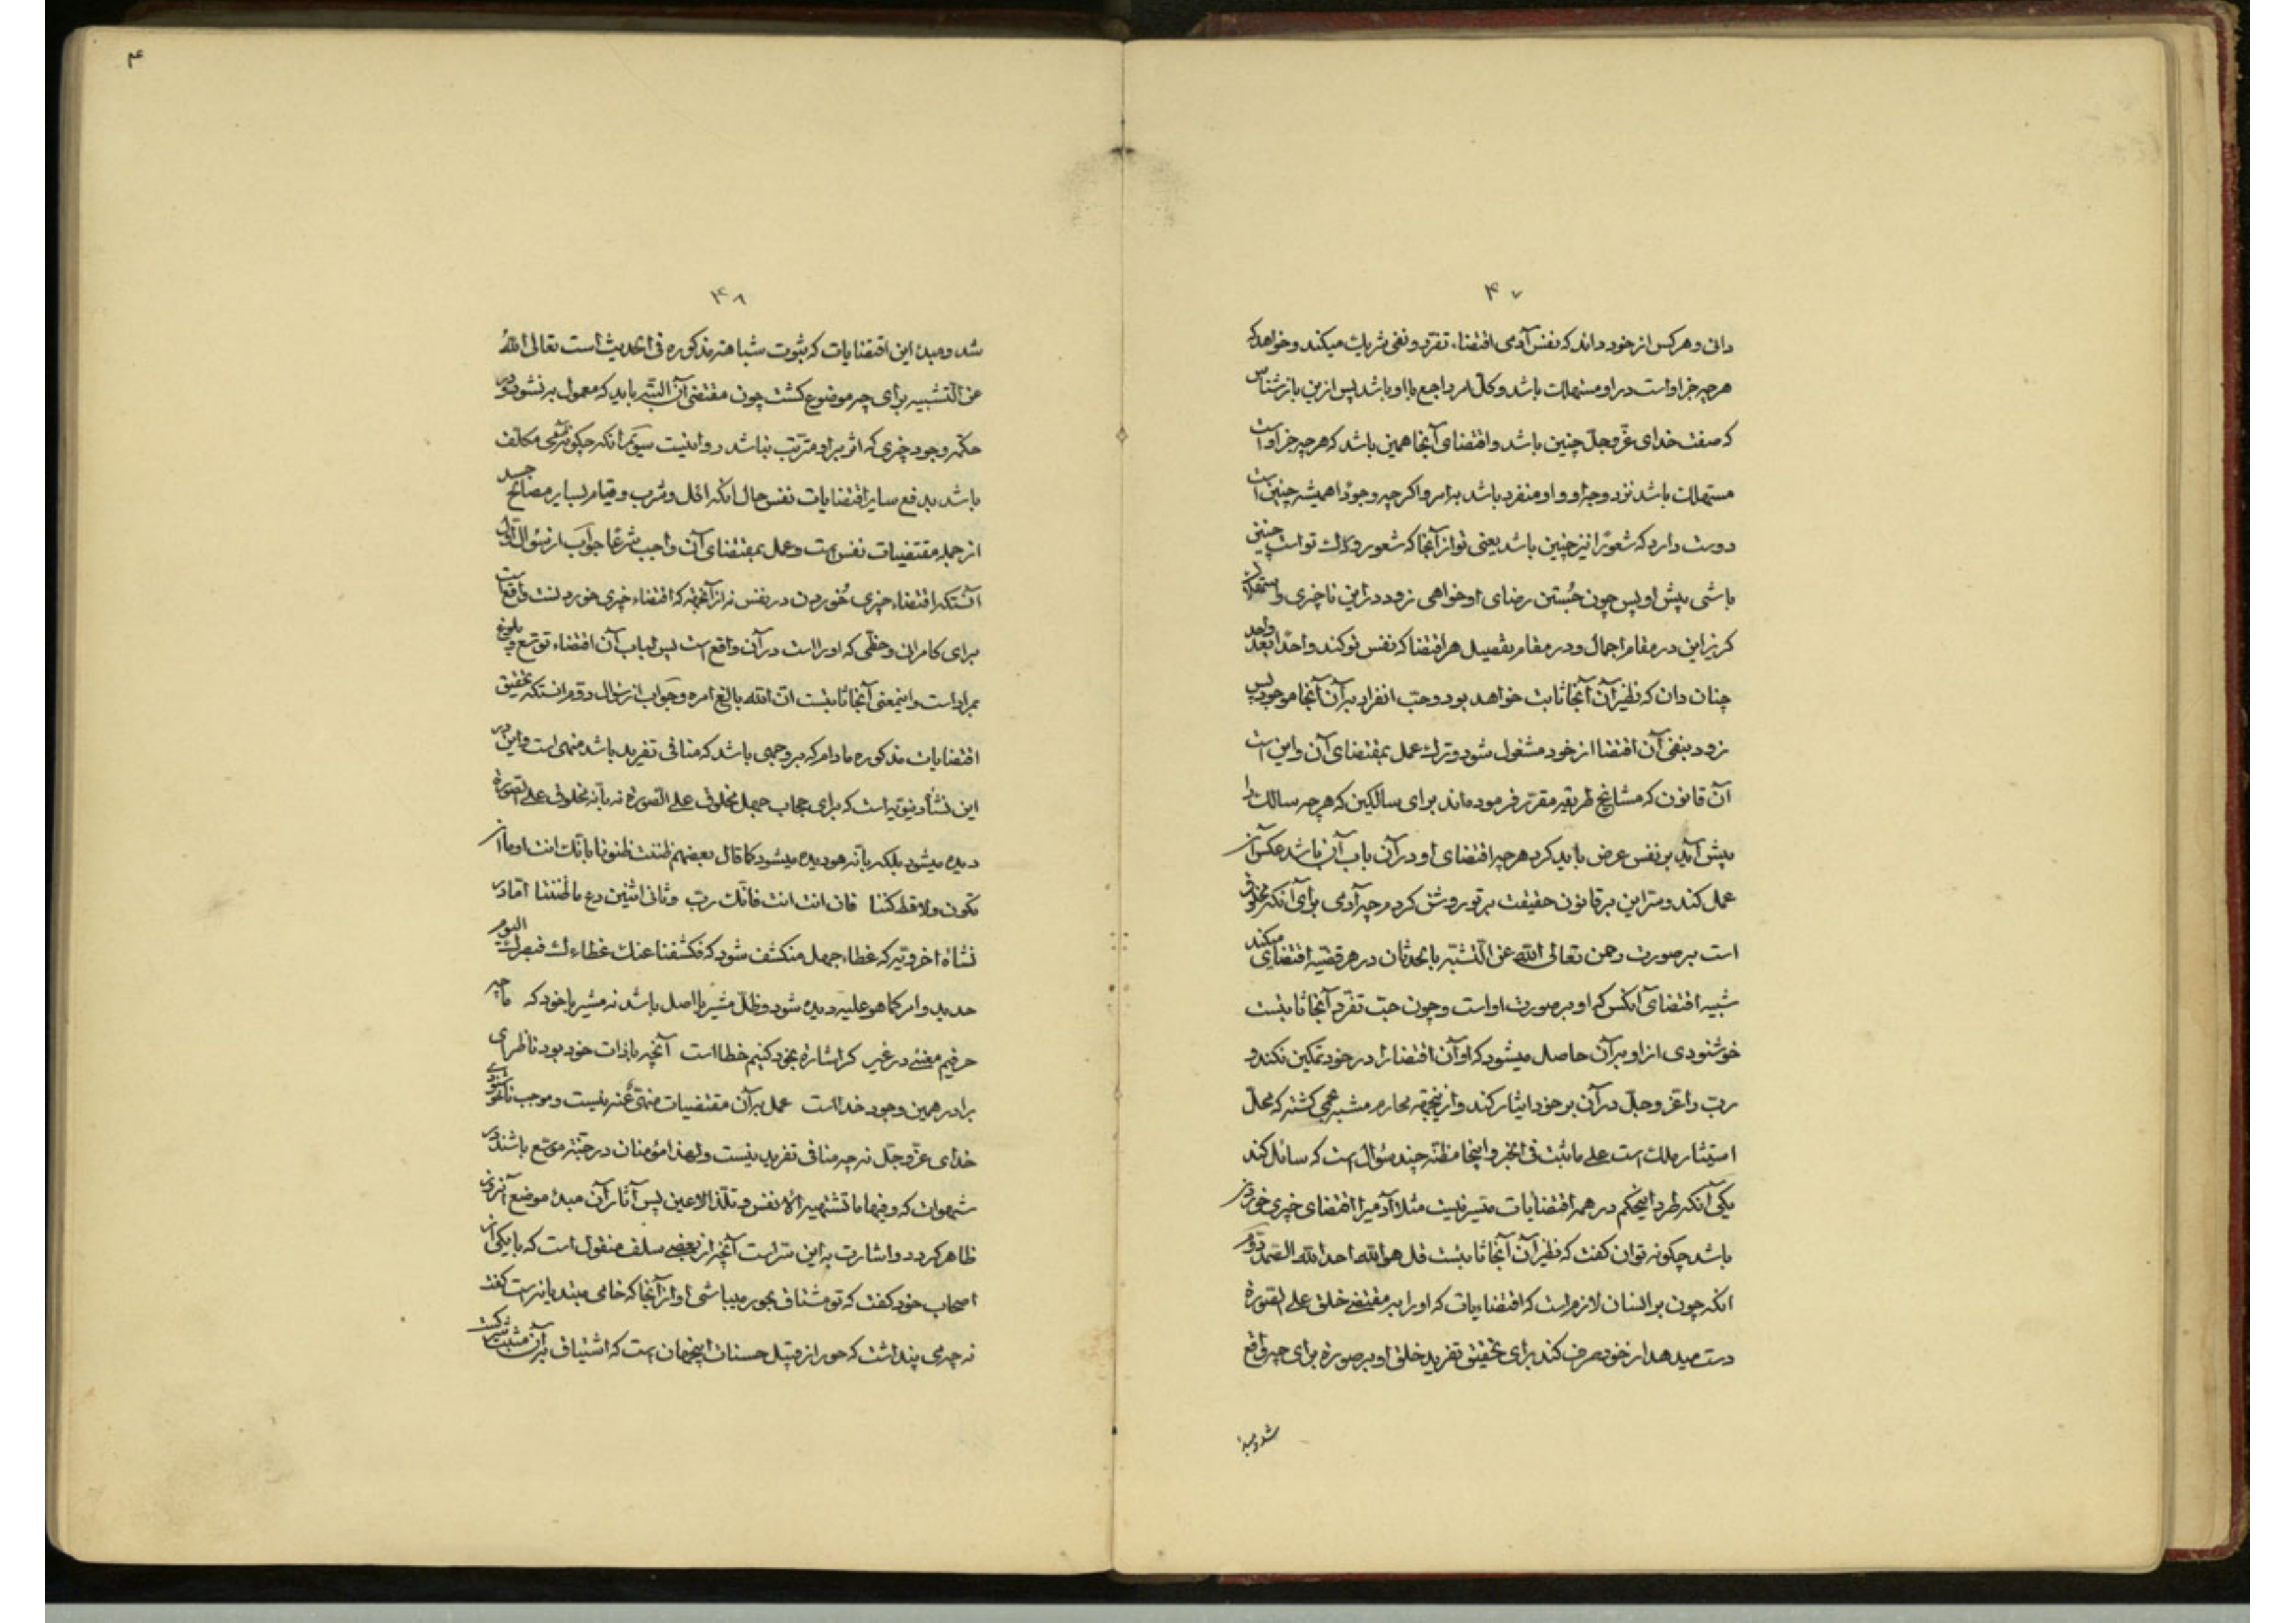 ۴۷
دان و هر کس از خود داند که نفس آدمی اقتضاء تفرد و نفی شریک میکند و خواهد که
هر چه جز او است در او مستهلک باشد و کل امر راجع با او باشد پس از این باز شناس
که صفت خدای عز و جل چنین باشد و اقتضای آنجا همین باشد که هر چه جز او است
مستهلک باشد نزد وجه او و او منفرد باشد بامر و اگر چه وجودا همیشه چنین است
دوست دارد که شعورا نیز چنین باشد یعنی تو از آنجا که شعور و ادراک تو است چنین
باشی پیش او پس چون جستن رضای او خواهی زود در این ناچیزی و استهلاک
گریز این در مقام اجمال و در مقام تفصیل هر اقتضا که نفس تو کند واحدا بعد واحد
چنان دان که نظیر آن آنجا ثابت خواهد بود و حب انفراد بر آن آنجا موجود پس
زود بنفی آن اقتضا از خود مشغول شود و ترک عمل بمقتضای آن و این است
آن قانون که مشایخ طریقه مقرر فرموده‌اند برای سالکین که هر چه سالک را
پیش آید بر نفس عرض باید کرد هر چه اقتضای او در آن باب آن باشد عکس آن
عمل کند و سر این بر قانون حقیقت بر تو روشن کردم چه آدمی برای آنکه مخلوق
است بر صورت رحمن تعالی الله عن التشبه بالحدثان در هر قضیه اقتضای میکند
شبیه اقتضای آنکس که او بر صورت او است و چون حب تفرد آنجا ثابتست
خوشنودی از او بر آن حاصل میشود که او آن اقتضا را در خود تمکین نکند و
رب را عز و جل در آن بر خود ایثار کند و از اینجهة محارم مشبه بحمی گشته که محل
استیثار ملک است علی ما ثبت فی الخبر و اینجا مظنه چند سؤال است که سائل کند
یکی آنکه طرد اینحکم در همه اقتضایات متیسر نیست مثلا آدمیرا اقتضای چیزی خوردن
باشد چگونه توان گفت که نظیر آن آنجا ثابتست قل هو الله احد الله الصمد دوم
آنکه چون بر انسان لازم است که اقتضاءیات که او را بر مقتضی خلق علی الصورة
دست میدهد از خود صرف کند برای تحقیق تفرید خلق او بر صورة برای چه واقع
شد و مبدء
۴۸
شد و مبدء این اقتضایات که ثبوت شباهة مذکوره فی الحدیث است تعالی الله
عن التشبیه برای چه موضوع گشت چون مقتضی آن البته باید که معمول به نشود و در
حکمة وجود چیزی که اثر بر او مترتب نباشد روا نیست سیوم آنکه چگونه آدمی مکلف
باشد بدفع سایر اقتضایات نفس حال آنکه اکل و شرب و قیام بسایر مصالح جسد
از جمله مقتضیات نفس است و عمل بمقتضای آن واجب شرعا جواب از سؤال اول
آنستکه اقتضاء چیزی خوردن در نفس نه از آنجهة که اقتضاء چیزی خوردنست واقع است
برای کامرانی و حظی که او را است در آن واقع است پس لباب آن اقتضاء توسع و بلوغ
بمراد است و اینمعنی آنجا ثابتست ان الله بالغ امره و جواب از سؤال دوم آنستکه تحقیق
اقتضایات مذکوره مادام که بر وجهی باشد که منافی تفرید باشد منهی است و این در
این نشأه دنیویه است که برای حجاب جهل مخلوق علی الصورة نه بآنه مخلوق علی الصورة
دیده میشود بلکه بآنه هو دیده میشود کما قال بعضهم ظننت ظنونا بانک انت او ما ان
تکون ولا قط کنتا فان انت انت فانک رب و ثانی اثنین دع ما ظننتا اما در
نشاه اخرویه که غطاء جهل منکشف شود که فکشفنا عنک غطاءک فبصرک الیوم
حدید و امر کما هو علیه دیده شود و ظل مشیر با اصل باشد نه مشیر با خود که ما چه
حرفیم معنی در غیر گر اشاره بخود کنیم خطا است آنچه با ذات خود بود ناظر ای
برادر همین وجود خدا است عمل بر آن مقتضیات منهی عنه نیست و موجب ناخوشنودی
خدای عز و جل نه چه منافی تفرید نیست و لهذا مؤمنان در جنة موسع باشند در
شهوات که و فیها ما تشتهیه الانفس و تلذ الاعین پس آثار آن مبدء موضع آنروز
ظاهر گردد و اشارت به این سر است آنچه از بعضی سلف منقول است که با یکی از
اصحاب خود گفت که تو مشتاق بحور میباشی او از آنجا که خامی مبتدیانه است گفت
نه چه می پنداشت که حور از قبیل حسنات اینجهان است که اشتیاق بر آن مثبت شرکت